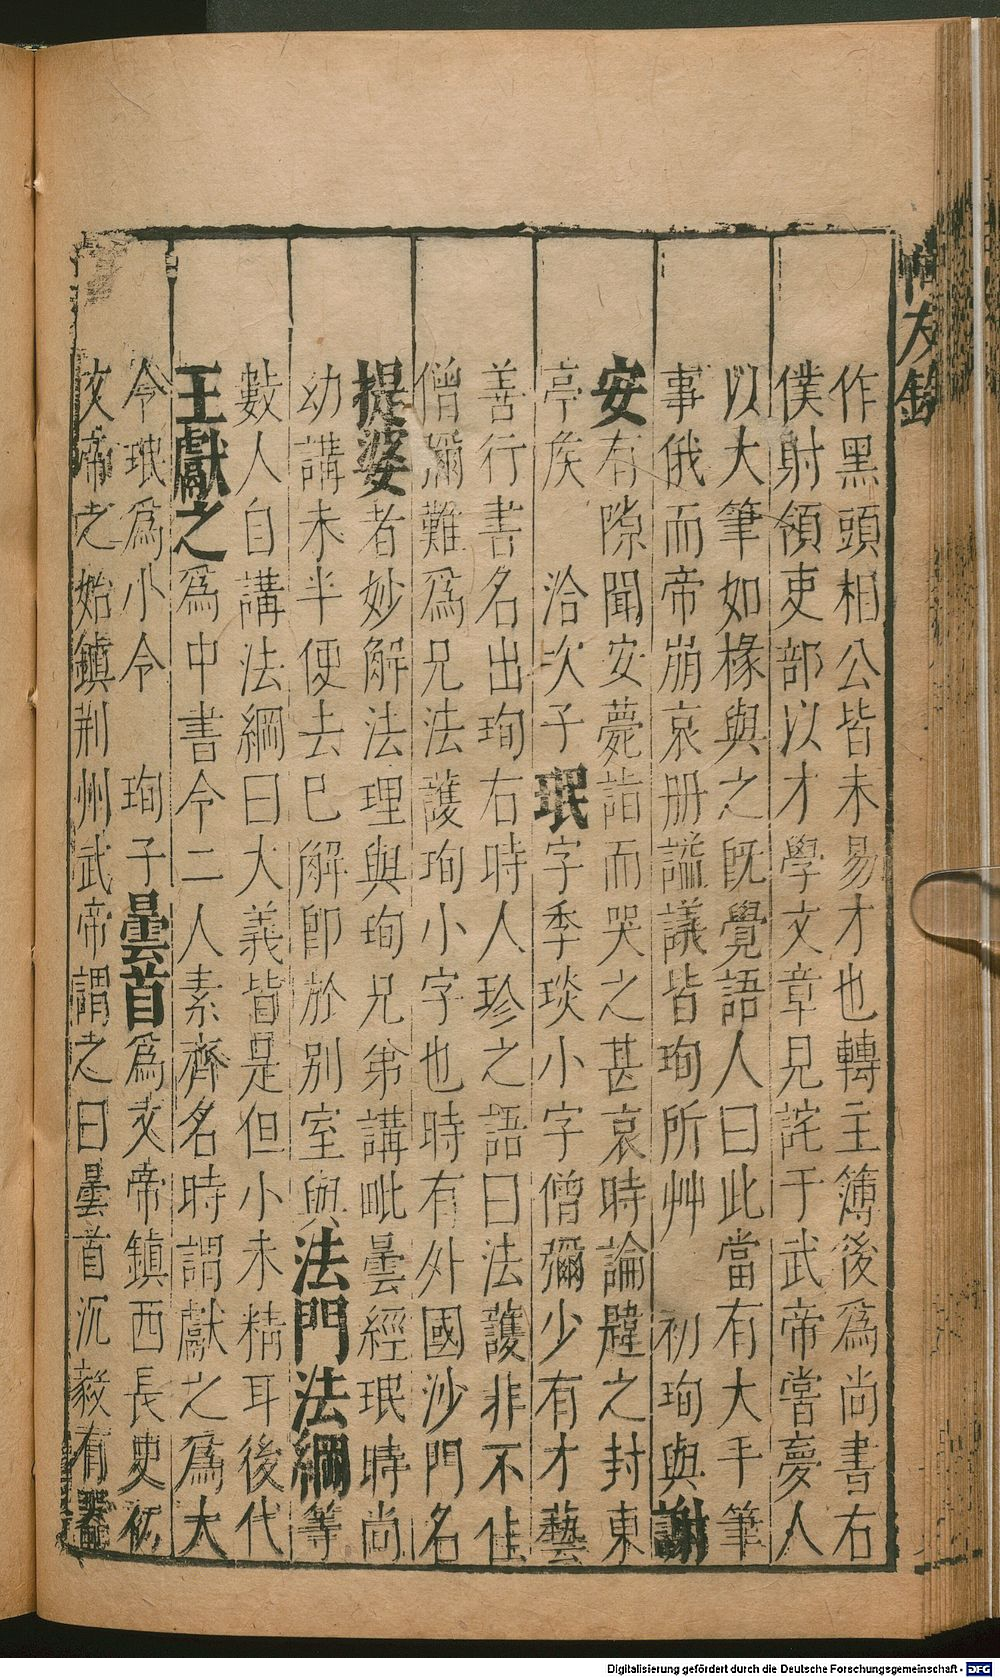 尚友錄
作黑頭相公皆未易才也轉主簿後爲尚書右
僕射領吏部以才學文章見詫于武帝嘗夢人
以大筆如椽與之既覺語人曰此當有大手筆
事俄而帝崩哀册謚議皆珣所艸　初珣與謝
安有隙聞安薨詣而哭之甚哀時論韙之封東
亭矦　洽次子　珉字季琰小字僧彌少有才藝
善行書名出珣右時人珍之語曰法護非不佳
僧彌難爲兄法護珣小字也時有外國沙門名
提婆者妙解法理與珣兄弟講毗曇經珉時尚
幼講未半便去已解卽於別室與法門法綱等
數人自講法綱曰大義皆是但小未精耳後代
王獻之爲中書令二人素齊名時謂獻之爲大
令珉爲小令　珣子曇首爲文帝鎮西長史初
文帝之始鎮荆州武帝謂之曰曇首沉毅有器
Digitalisierung gefördert durch die Deutsche Forschungsgemeinschaft - DFG